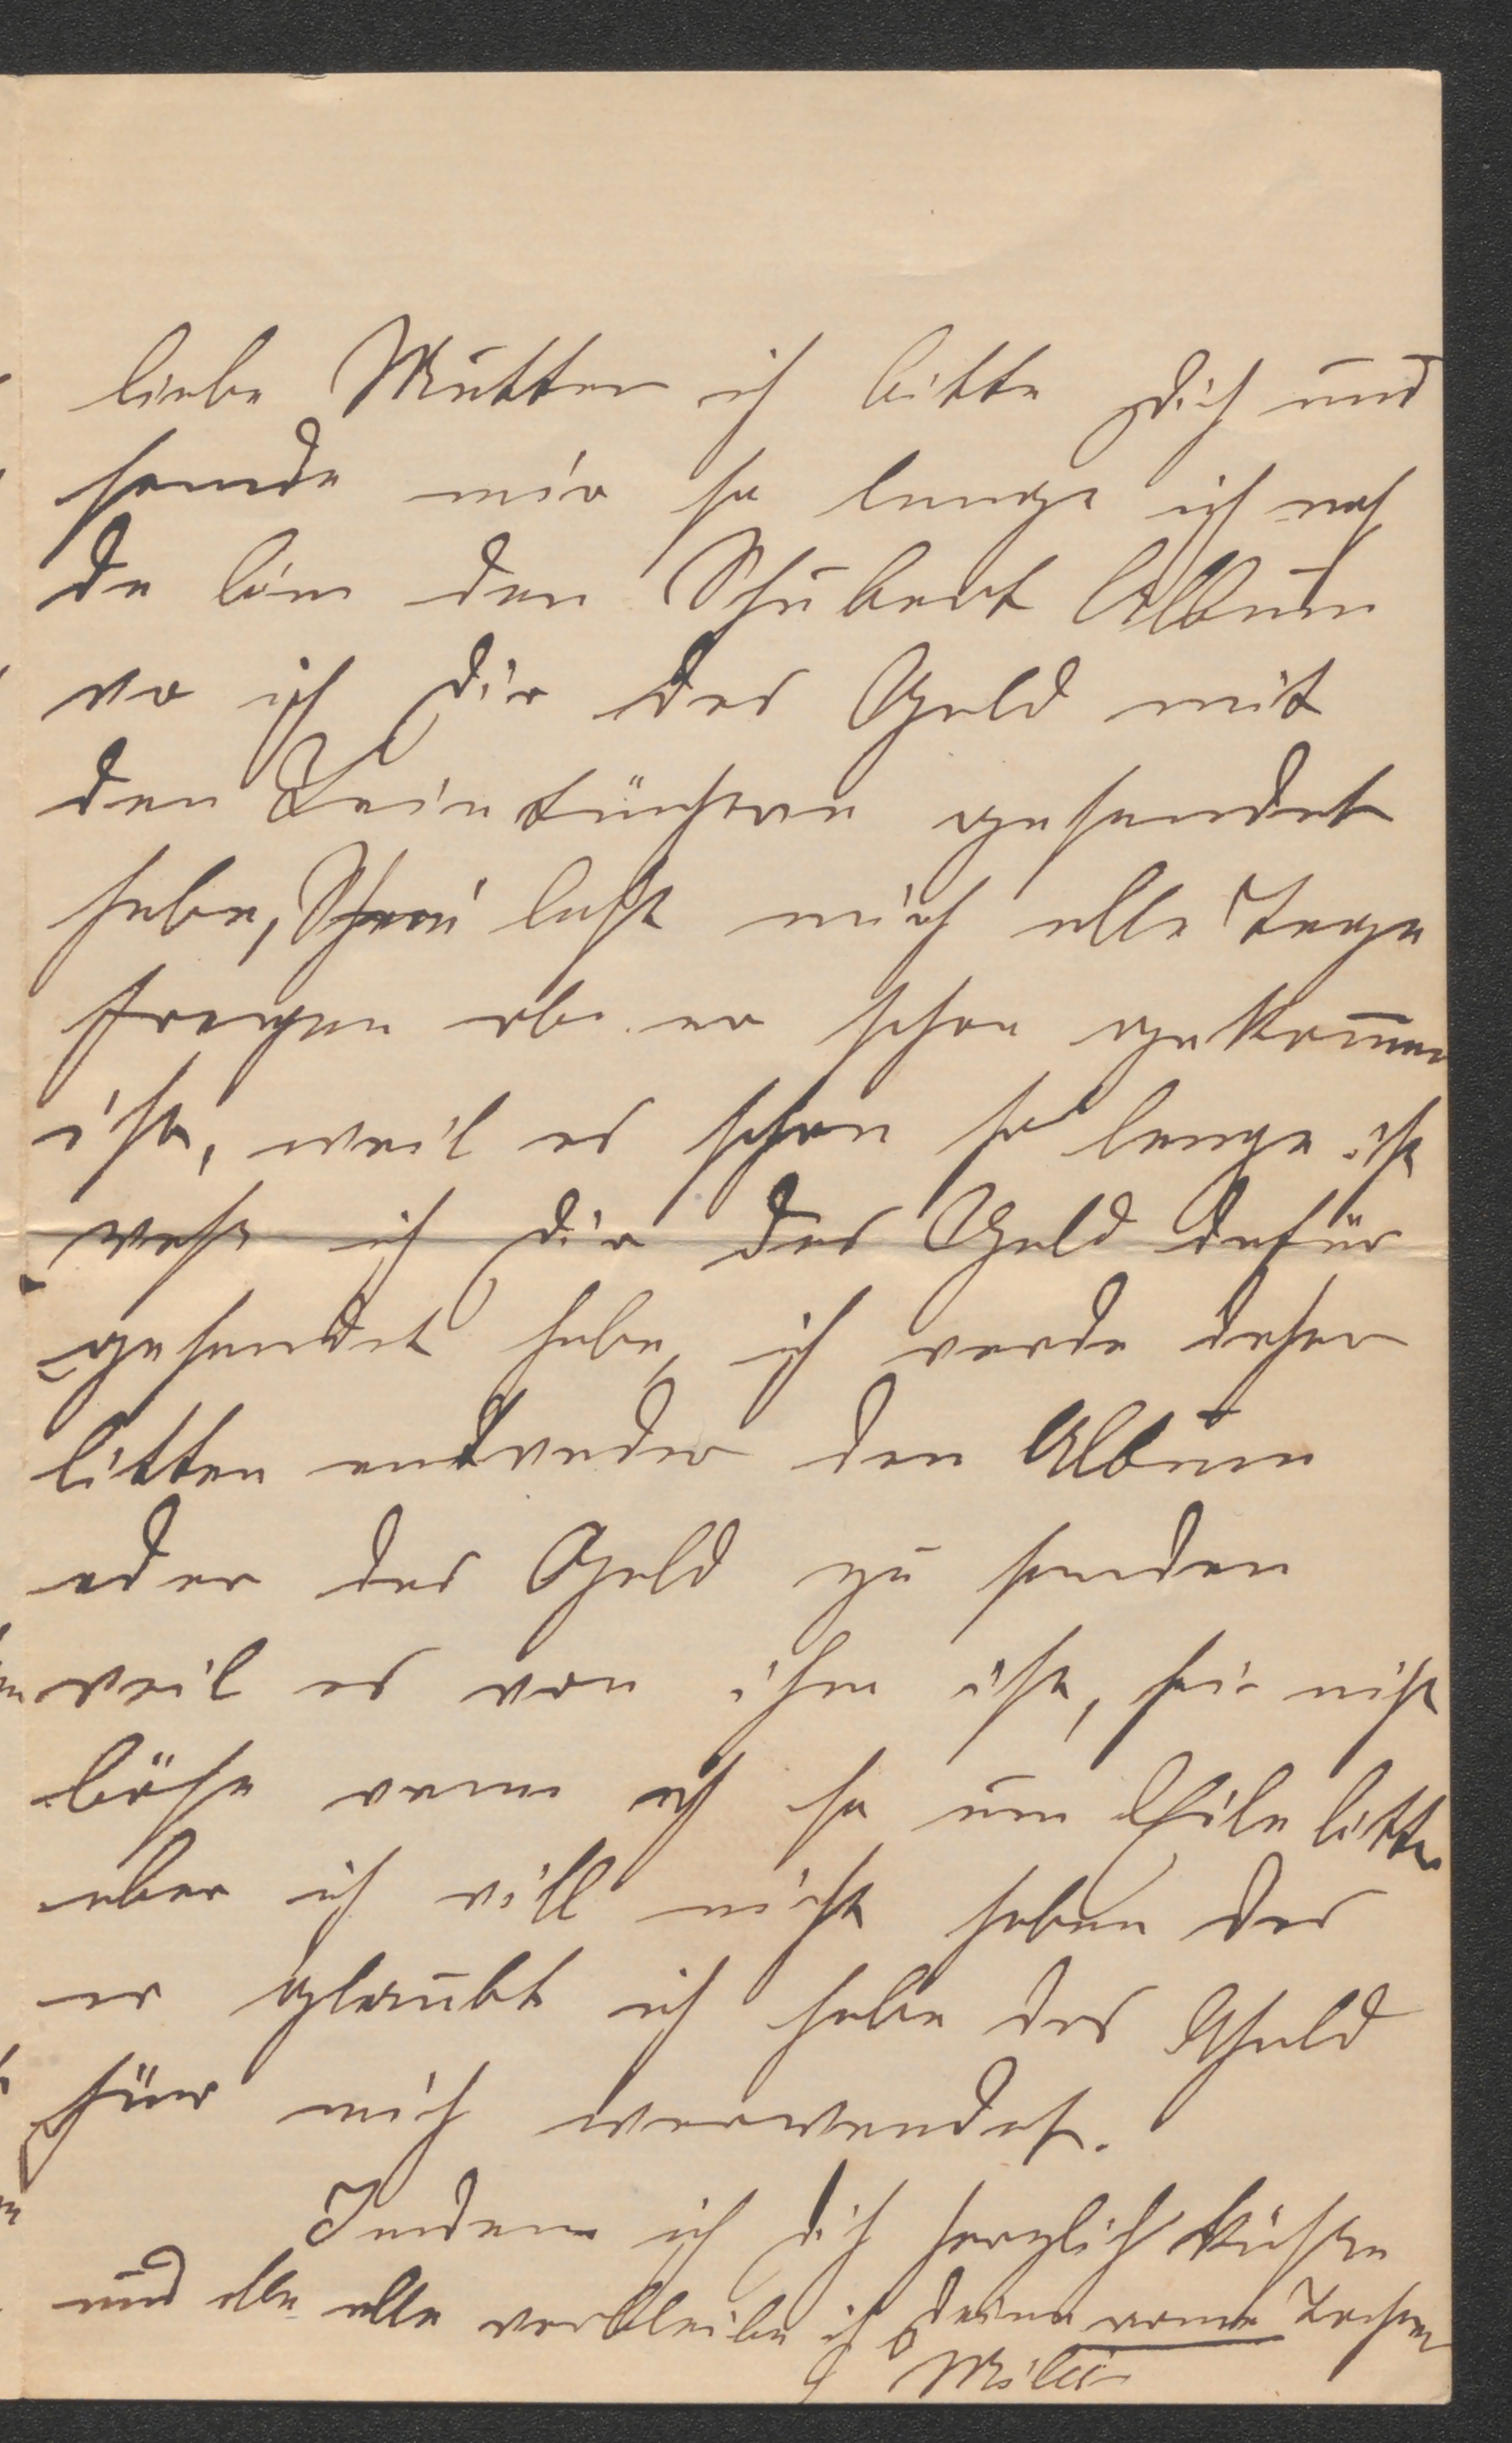 liebe Mutter ich bitte Dich und
sende mir so lange ich noch
da bin den Schubert Album
wo ich Dir das Geld mit
den Leintüchern gesendet
habe, laßt mich alle Tage
fragen ob er schon gekom̅en
ist, weil es schon so lange ist
ich Dir das Geld dafür
gesendet habe, ich werde daher
bitten entweder den Album
oder das Geld zu senden
weil es von ihm ist, sei nicht
böse wenn ich so um Eile bitte
aber ich will nicht haben das
er glaubt ich habe das Geld
für mich verwendet.
Indem ich dich herzlich küsse
und alle alle verbleibe ich Deine arme Tochter